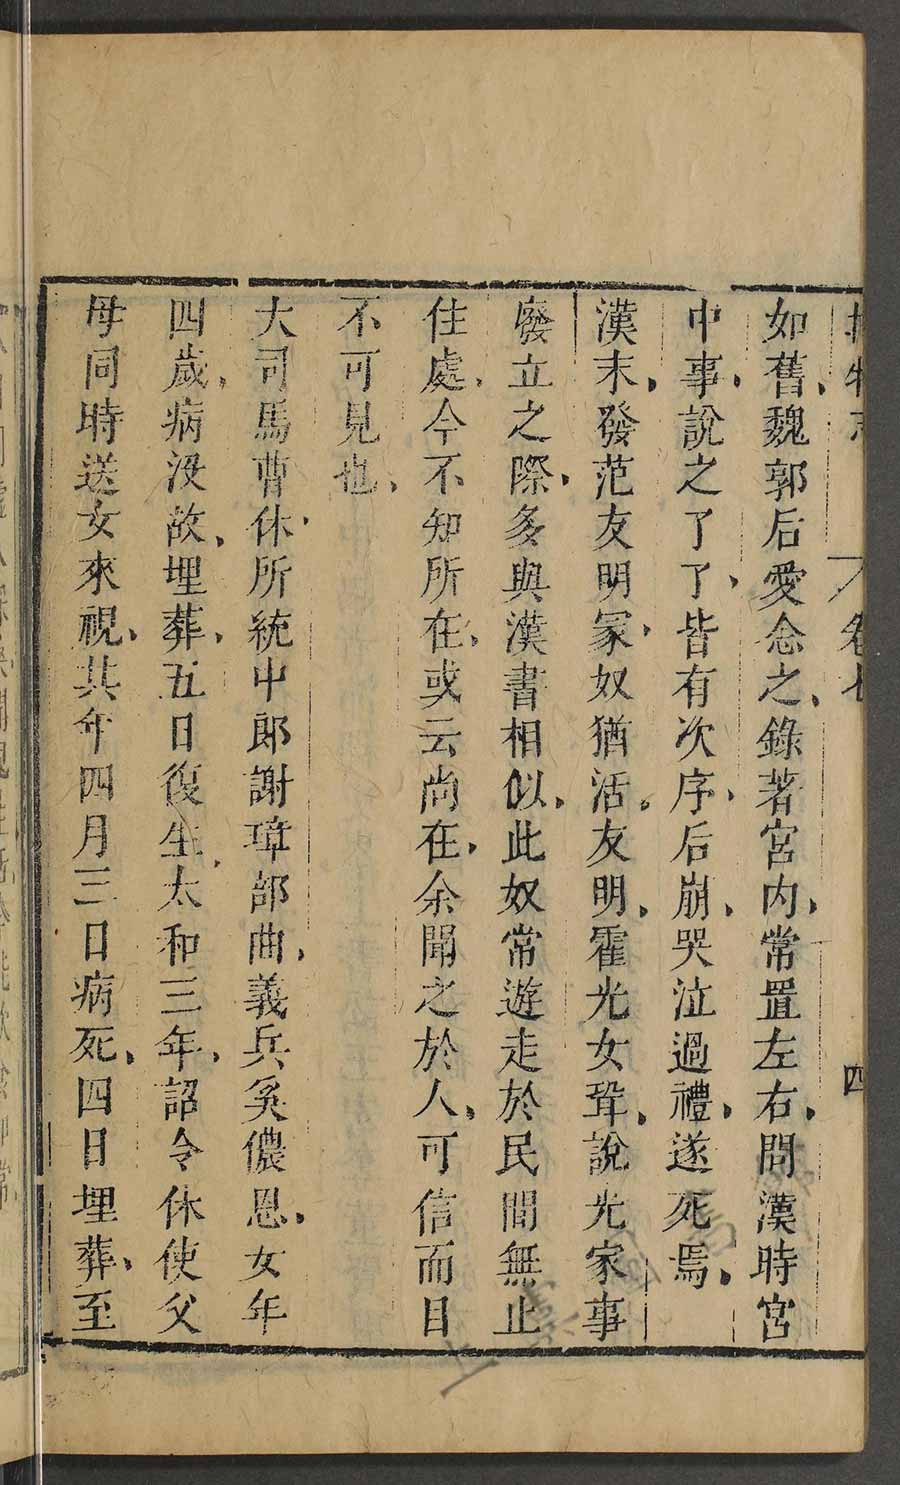 博物志 卷七 四
如舊、魏郭后愛念之、錄著宮内、常置左右、問漢時宮
中事、說之了了、皆有次序、后崩、哭泣過禮、遂死焉、
漢末、發范友明冢、奴猶活。友明、霍光女聓、說光家事
廢立之際、多與漢書相似、此奴常遊走於民間無止
住處、今不知所在、或云尚在、余聞之於人、可信而目
不可見也、
大司馬曹休、所統中郎謝璋部曲、義兵奚儂恩、女年
四歲、病没故、埋葬、五日復生、太和三年、詔令休使父
母同時送女來視、其年四月三日病死、四日埋葬、至